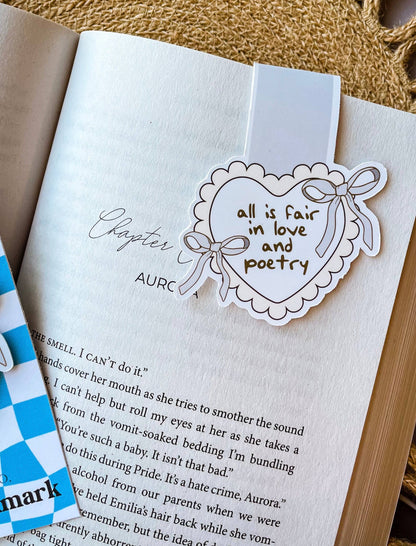 all is fair
in love
and
poetry
Chapter
AURORA
THE SMELL. I CAN'T do it."
hands cover her mouth as she tries to smother the sound
I can't help but roll my eyes at her as she takes a
from the vomit-soaked bedding I'm bundling
"You're such a baby. It isn't that bad."
do this during Pride. It's a hate crime, Aurora."
alcohol from our parents when we were
've held Emilia's hair back while she vom-
remember, but the idea of
bag tight
arently abhorre
O.
mark